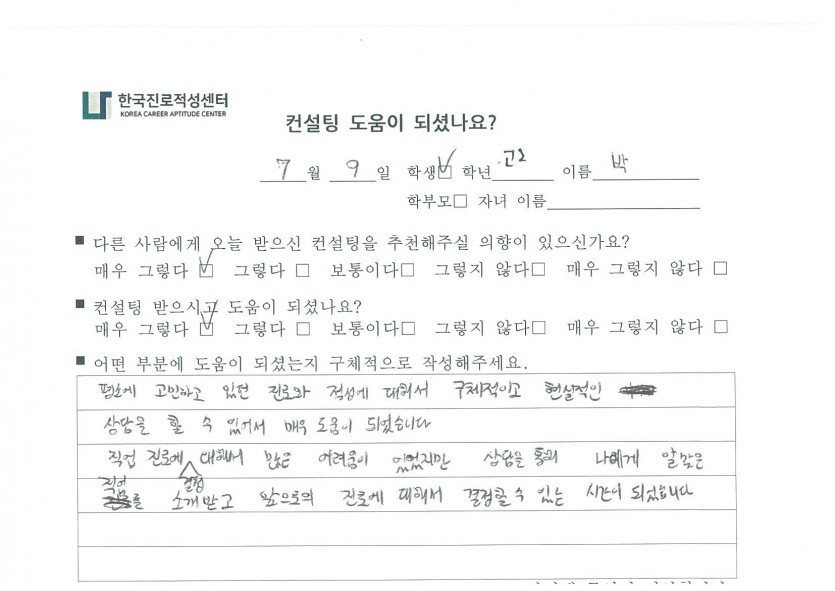 한국진로적성센터
KOREA CAREER APTITUDE CENTER
컨설팅 도움이 되셨나요?
7월 9일 학생☑ 학년 고2 이름 박
학부모□ 자녀 이름
■ 다른 사람에게 오늘 받으신 컨설팅을 추천해주실 의향이 있으신가요?
매우 그렇다 ☑ 그렇다 □ 보통이다□ 그렇지 않다□ 매우 그렇지 않다 □
■ 컨설팅 받으시고 도움이 되셨나요?
매우 그렇다 ☑ 그렇다 □ 보통이다□ 그렇지 않다□ 매우 그렇지 않다 □
■ 어떤 부분에 도움이 되셨는지 구체적으로 작성해주세요.
평소에 고민하고 있던 진로와 적성에 대해서 구체적이고 현실적인
상담을 할 수 있어서 매우 도움이 되었습니다
직업 진로에 결정 대해서 많은 어려움이 있었지만 상담을 통해 나에게 알맞은
직업를 소개받고 앞으로의 진로에 대해서 결정할 수 있는 시간이 되었습니다